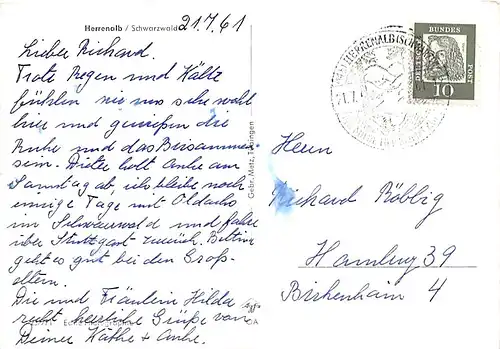 Herrenalb / Schwarzwald 21.7.61
Lieber Richard.
Trotz Regen und Kälte
fühlen wir uns sehr wohl
hier und genießen die
Ruhe und das Beisammen-
sein. Dieter holt Anke am
Samstag ab, ich bleibe noch
einige Tage mit
im Schwarzwald und fahre
über Stuttgart zurück. Bettina
geht es gut bei den Groß-
eltern.
Die und Fräulein Hilda
recht herzliche Grüße von
Deiner Käthe + Anke.
Gebr. Metz, Tübingen
HERRENALB (SCHWARZW
DEUTSCHE BUNDES POST
10
Herrn
Richard Röbbig
Hamburg 39
Birkenhain 4